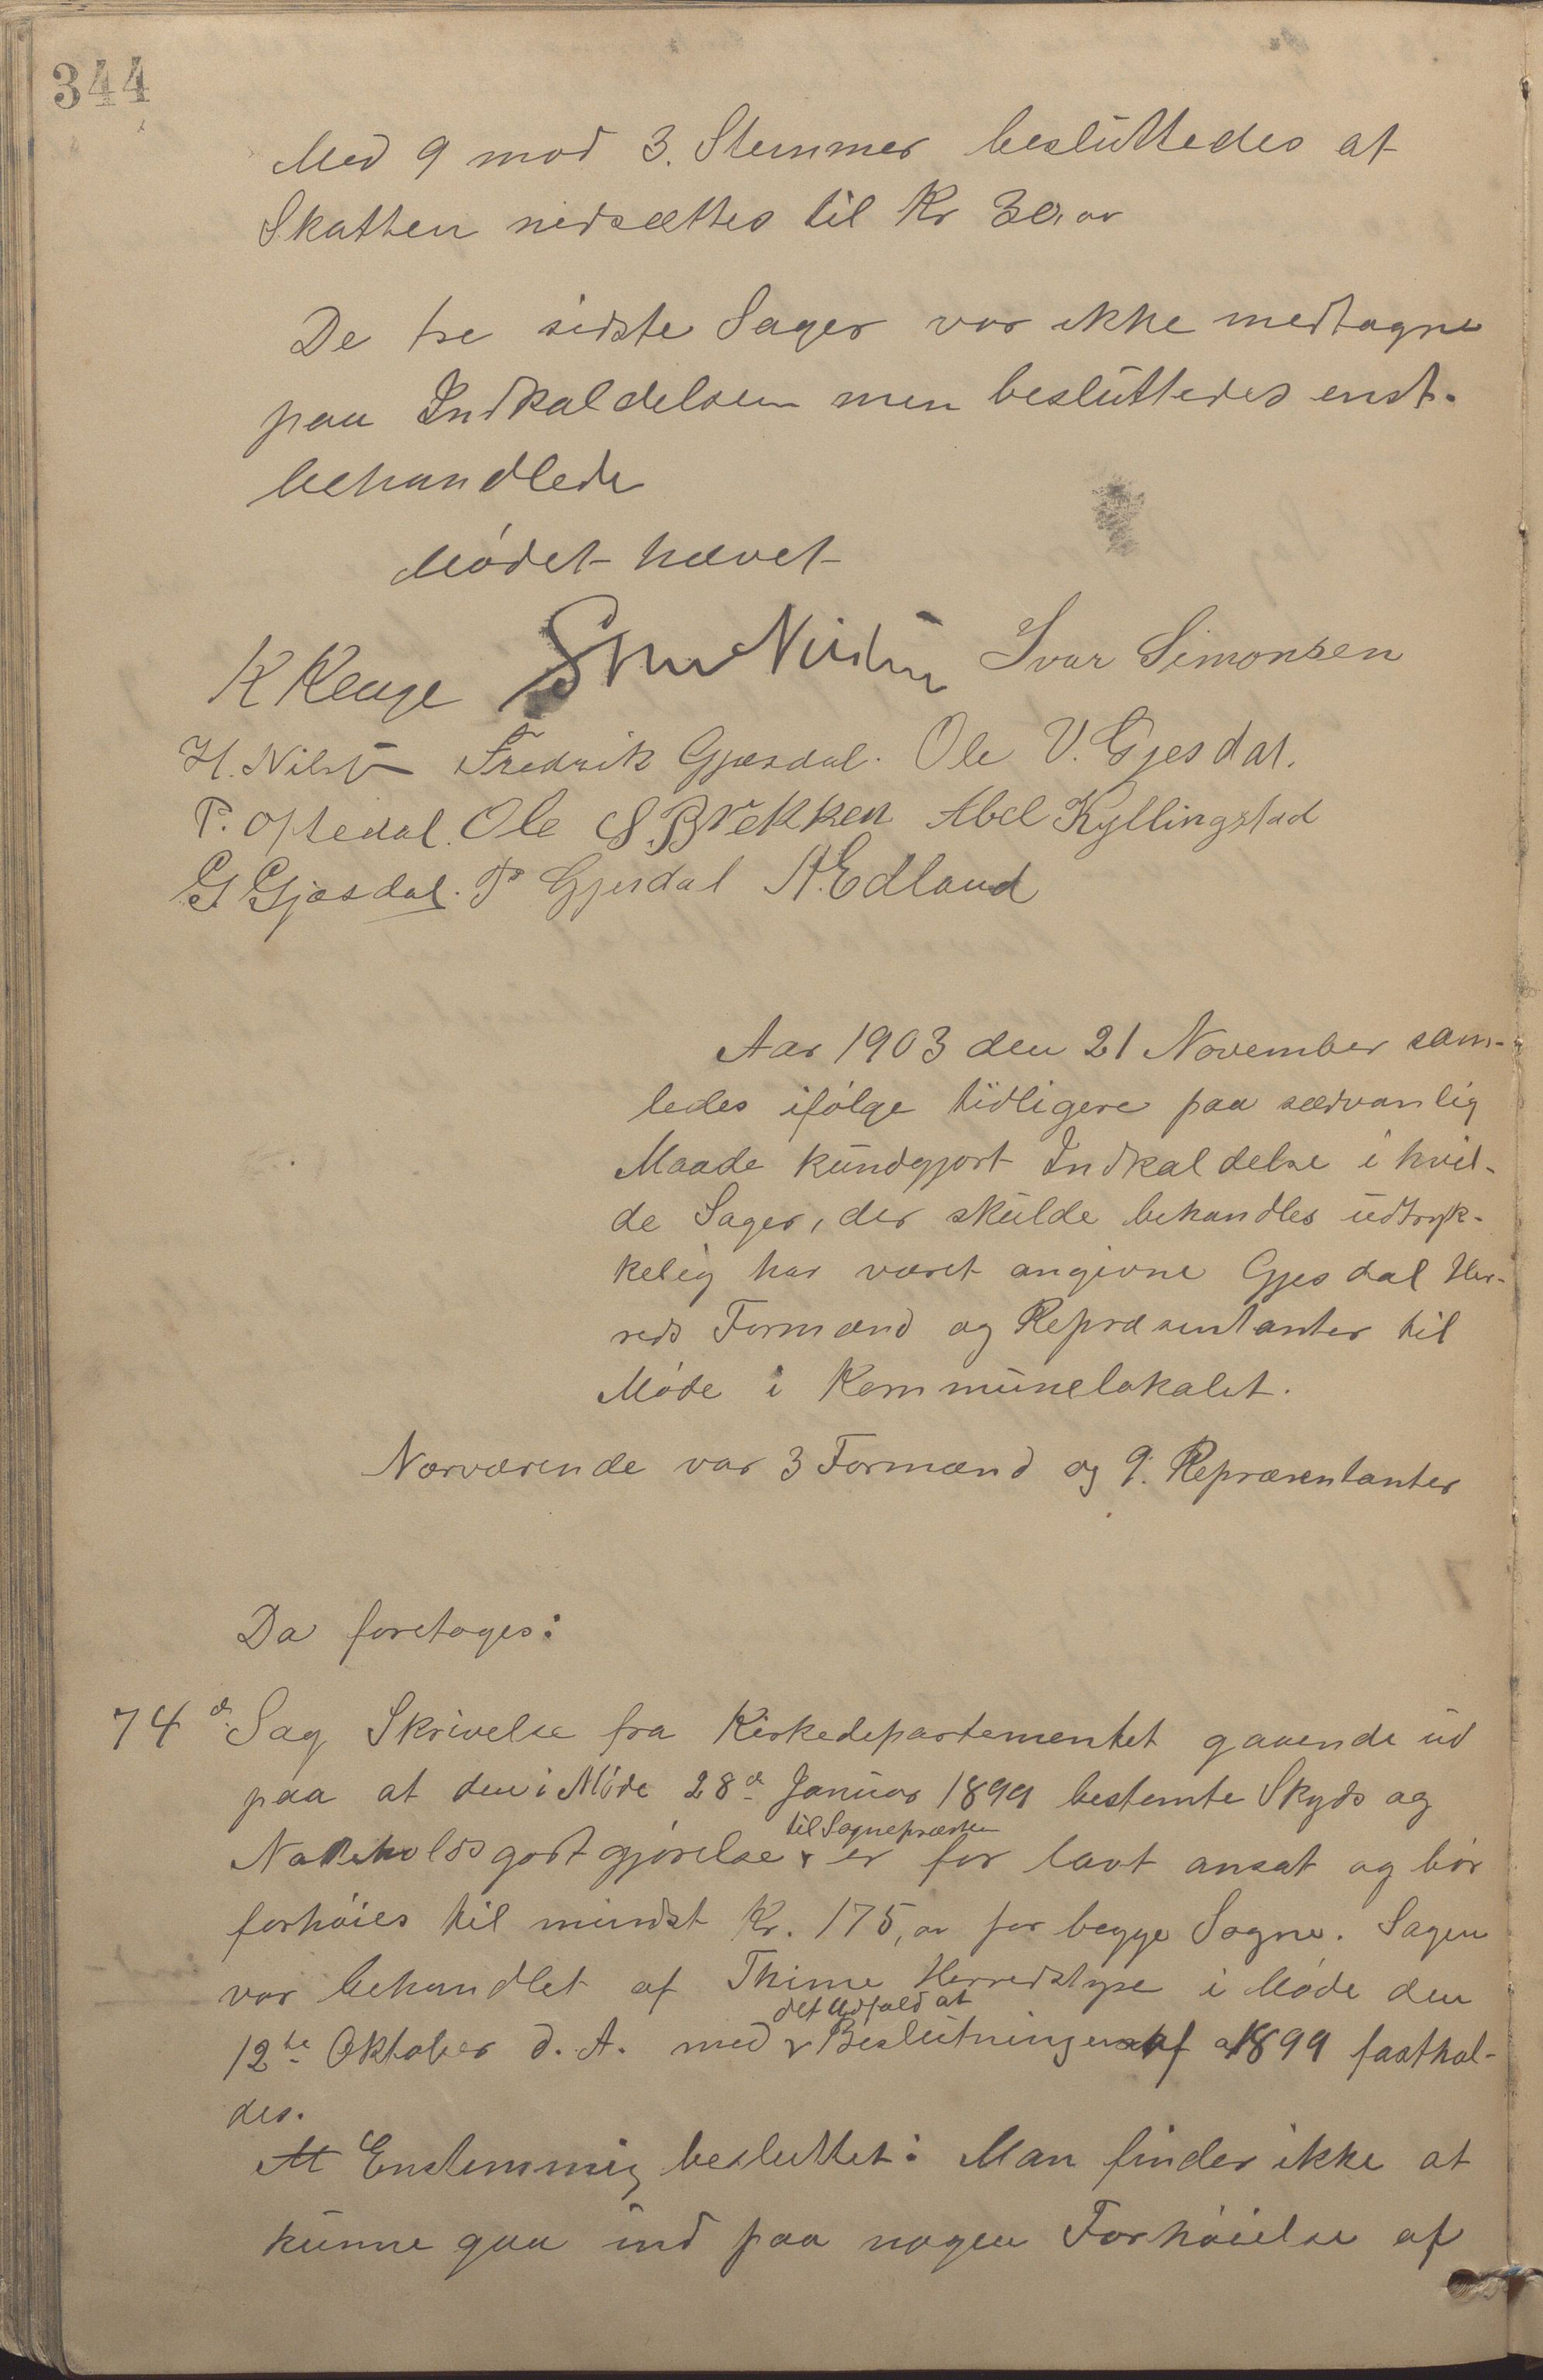 344
Med 9 mod 3. Stemmer besluttedes at
Skatten nedsættes til Kr 30,00
De tre sidste Sager var ikke medtagne
paa Indkaldelsen men besluttedes enst.
behandlede
Mødet hævet
K Kluge Ivar Simonsen
Fredrik Gjesdal. Ole V. Gjesdal.
T. Oftedal. Ole S. Brekken Abel Kyllingstad
G Gjesdal. T Gjesdal A. Edland
Aar 1903 den 21 November sam-
ledes ifølge tidligere paa sædvanlig
Maade kundgjort Indkaldelse i hvil-
de Sager, der skulde behandles udtryk-
kelig har været angivne Gjesdal Her-
reds Formænd og Repræsentanter til
Møde i Kommunelokalet.
Nærværende var 3 Formænd og 9. Repræsentanter
Da foretoges:
74d Sag Skrivelse fra Kirkedepartementet gaaende ud
paa at den i Møde 28d Januar 1899 bestemte Skyds og
til Sognepræsten
Natteholdsgodtgjørelse er for lavt ansat og bør
forhøies til mindst Kr. 175,00 for begge Sogne. Sagen
var behandlet af Thime Herredstyre i Møde den
det Udfald at
12te Oktober d. A. med Beslutningen af 1899 fasthol-
des.
At Enstemmig besluttet: Man finder ikke at
kunne gaa ind paa nogen Forhøielse af